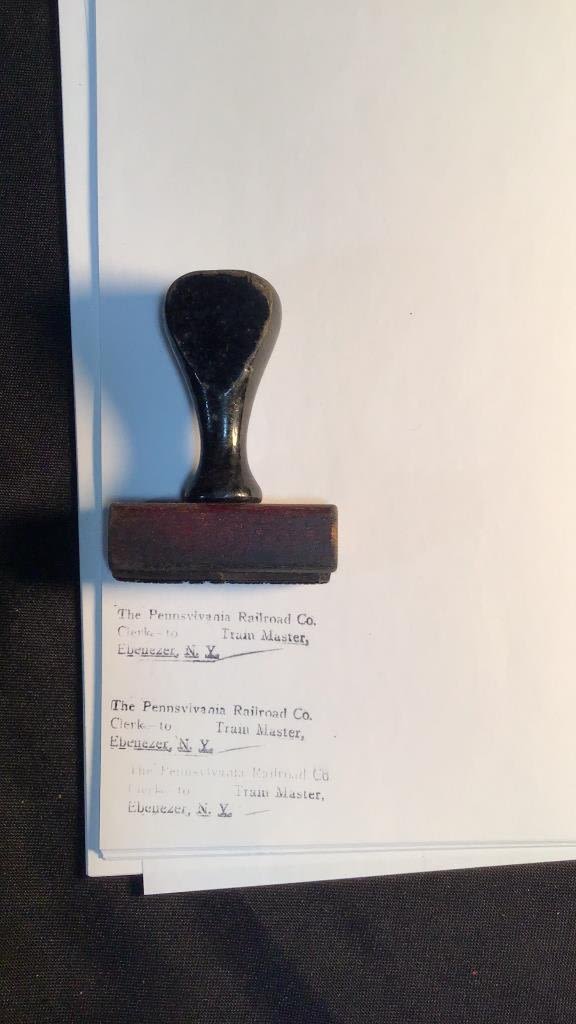 The Pennsylvania Railroad Co.
Clerk to Train Master,
Ebenezer, N. Y.
The Pennsylvania Railroad Co.
Clerk to Train Master,
Ebenezer, N. Y.
The Pennsylvania Railroad Co
Clerk to Train Master,
Ebenezer, N. Y.